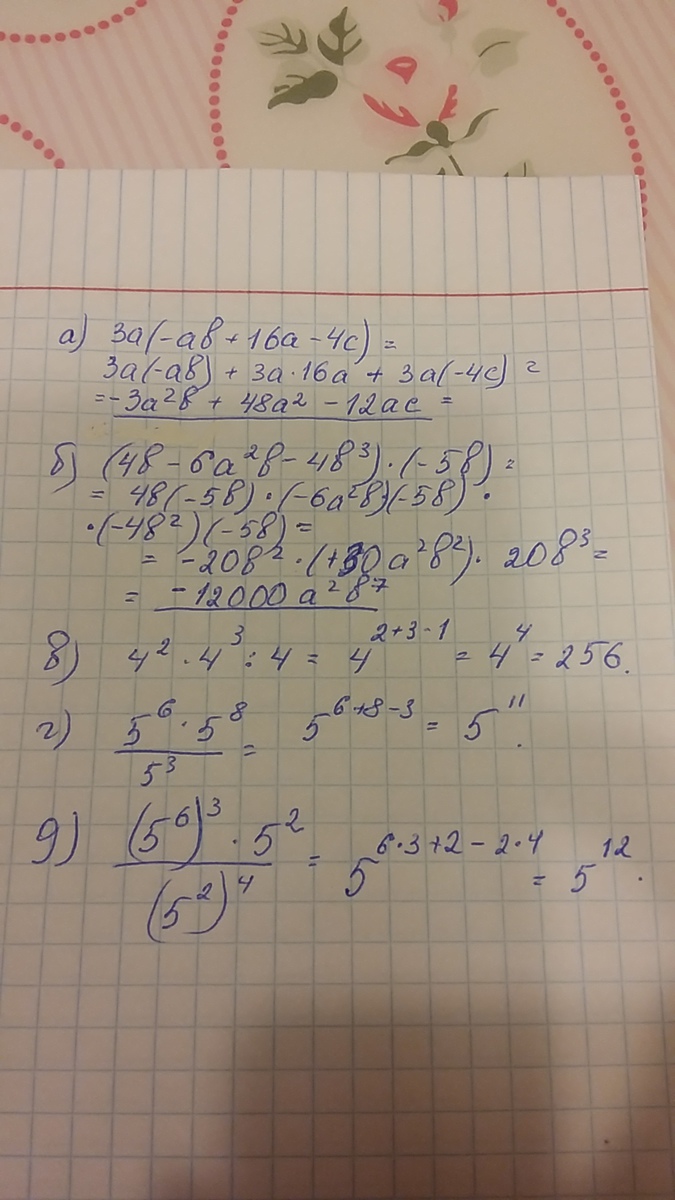 а) 3а(-ав + 16а - 4с) =
3а(-ав) + 3а·16а + 3а(-4с) =
= -3а²в + 48а² - 12ас =
б) (4в - 6а²в - 4в³)·(-5в) =
= 4в(-5в)·(-6а²в)(-5в)·
·(-4в²)(-5в) =
= -20в²·(+30а²в²)·20в³ =
= -12000а²в⁷
в) 4²·4³:4 = 4²⁺³⁻¹ = 4⁴ = 256.
г) (5⁶·5⁸)/5³ = 5⁶⁺⁸⁻³ = 5¹¹.
д) ((5⁶)³·5²)/(5²)⁴ = 5^(6·3+2-2·4) = 5¹².